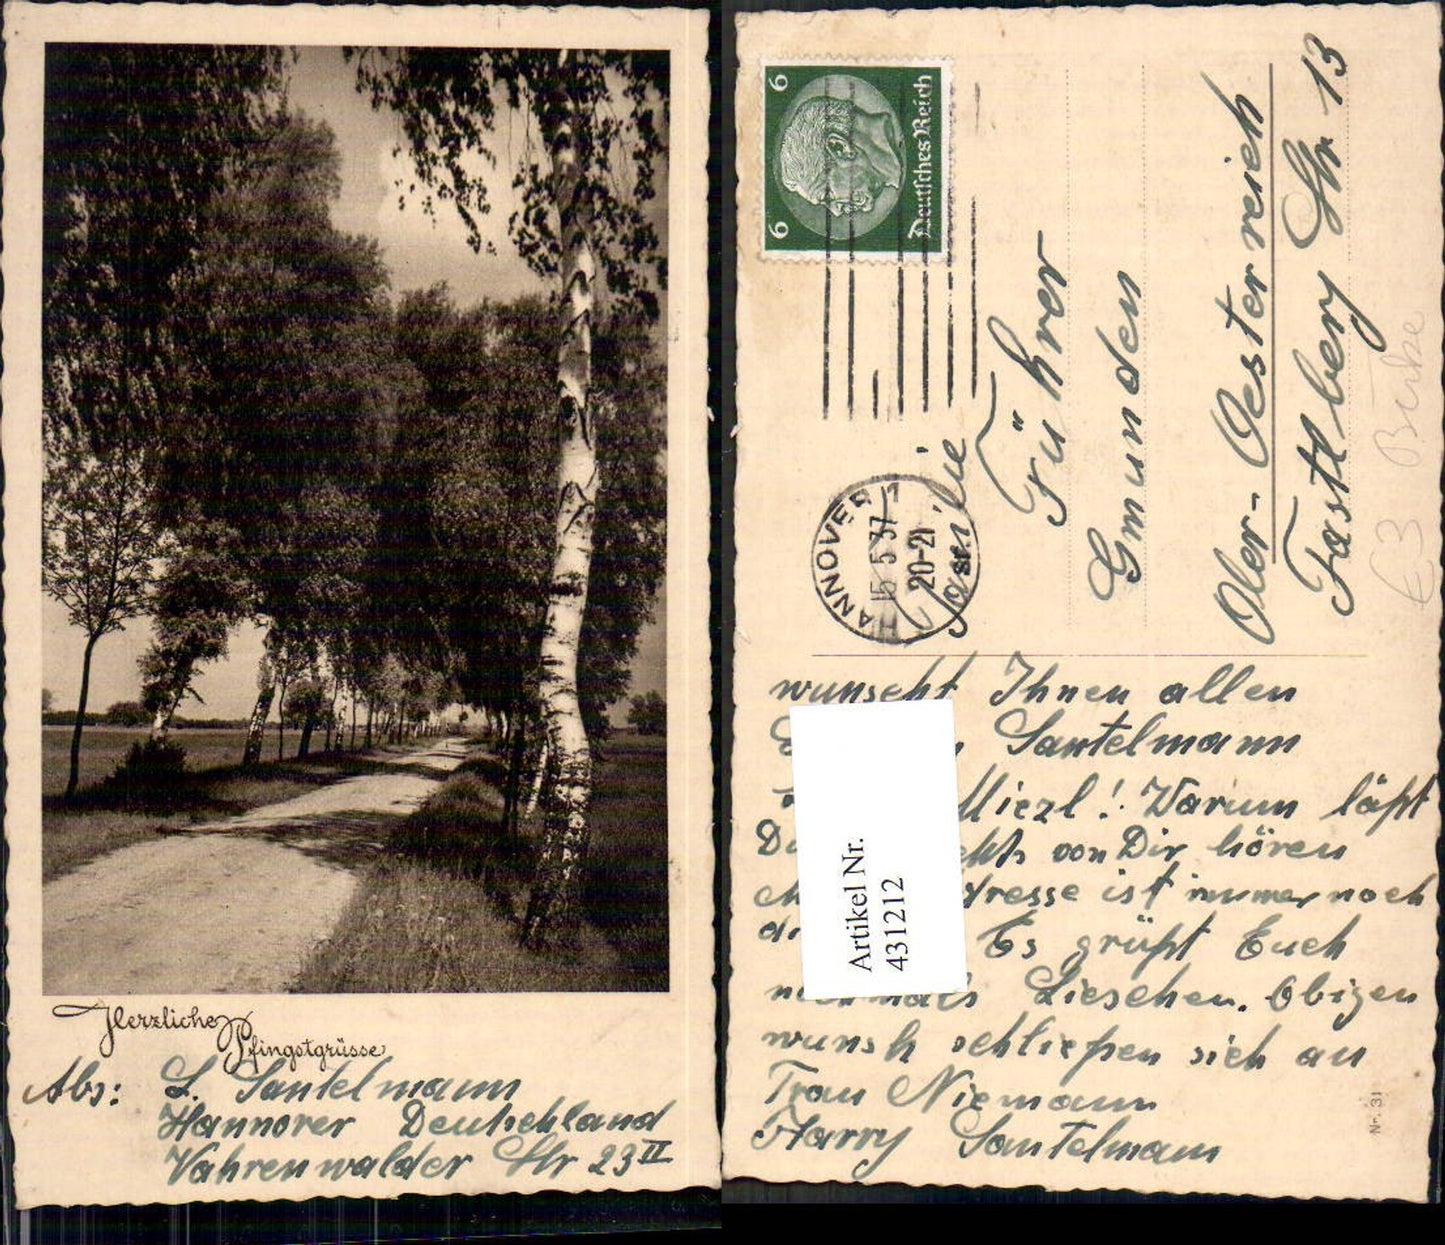 Herzliche
Pfingstgrüsse
Abs: L. Santelmann
Hannover Deutschland
Vahrenwalder Str 23 II
6 6
Deutsches Reich
HANNOVER 1
15.5.37
20-21
Familie
Führer
Gmunden
Ober-Oesterreich
Str 13
Birke
€3
wünscht Ihnen allen
Santelmann
Miezl! Warum läßt
von Dir hören
ist immer noch
Es grüßt Euch
Lieschen. Obigen
wunsh schließen sich an
Frau Niemann
Harry Santelmann
Artikel Nr.
431212
Nr. 31